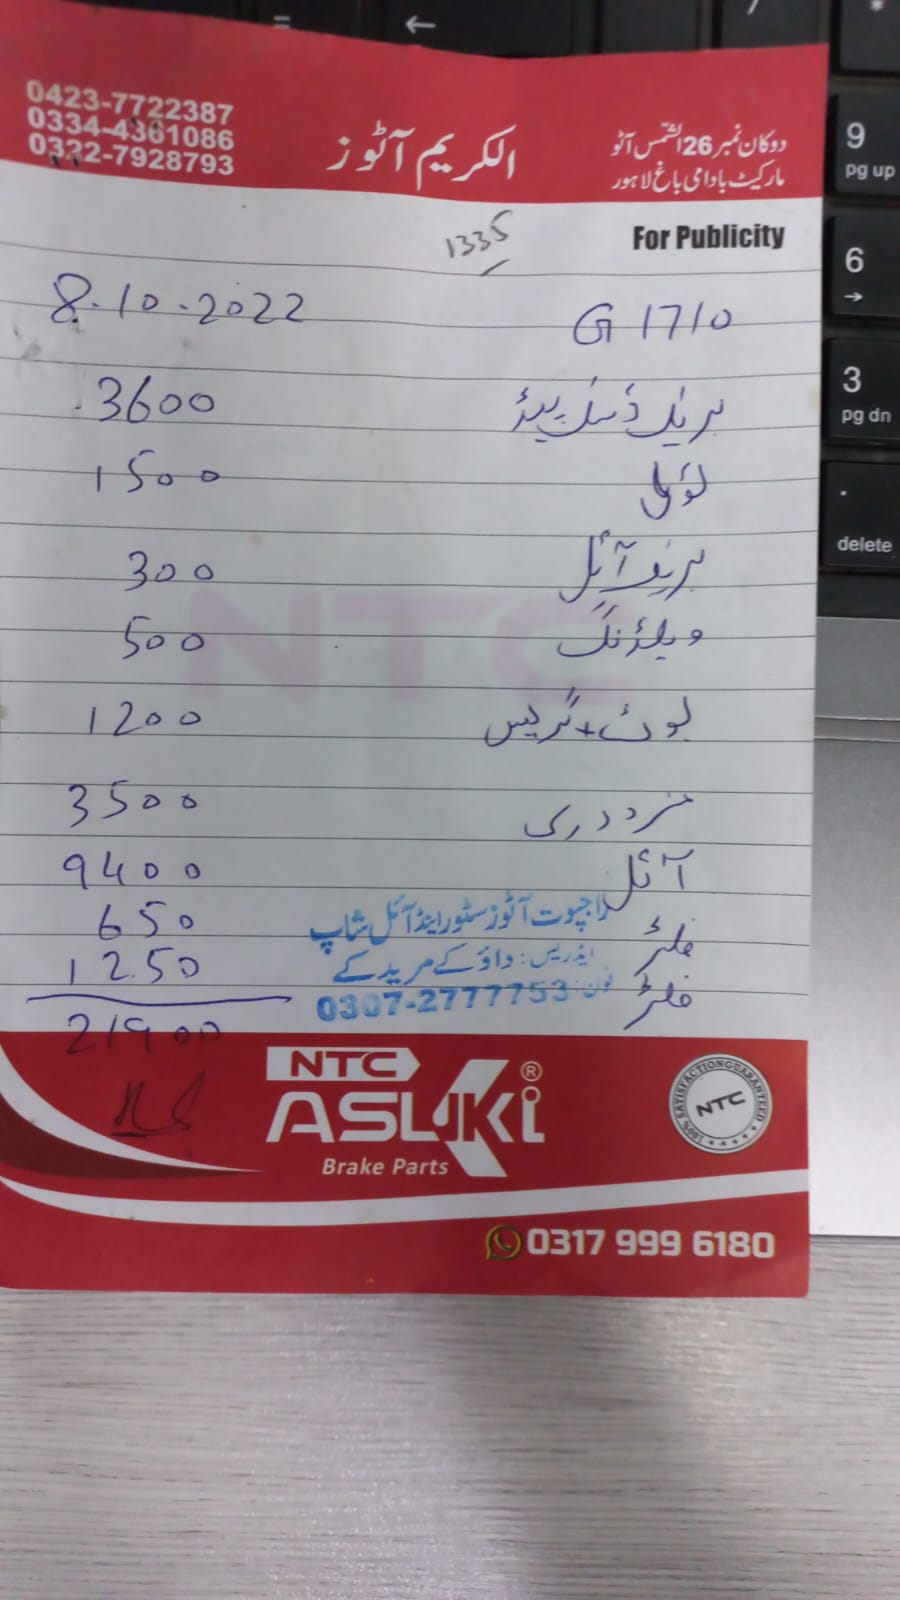 0423-7722387
0334-4361086
0322-7928793
الکریم آٹوز
دوکان نمبر 26 الشمس آٹو
مارکیٹ بادامی باغ لاہور
1335
For Publicity
8.10.2022 G 1710
3600 بریک ڈسک پیڈ
1500
300 بریک آئل
500 ویلڈنگ
1200 بوٹ + گریس
3500 مزدوری
9400 آئل
650 فلٹر
1250 فلٹر
21900
راجپوت آٹوز سٹور اینڈ آئل شاپ
ایڈریس: داؤکے مریدکے
فون: 0307-2777753
NTC
NTC
ASUKi ®
Brake Parts
100% SATISFACTION GUARANTEED
NTC
0317 999 6180
9
pg up
6
→
3
pg dn
.
delete
←
=
*
/